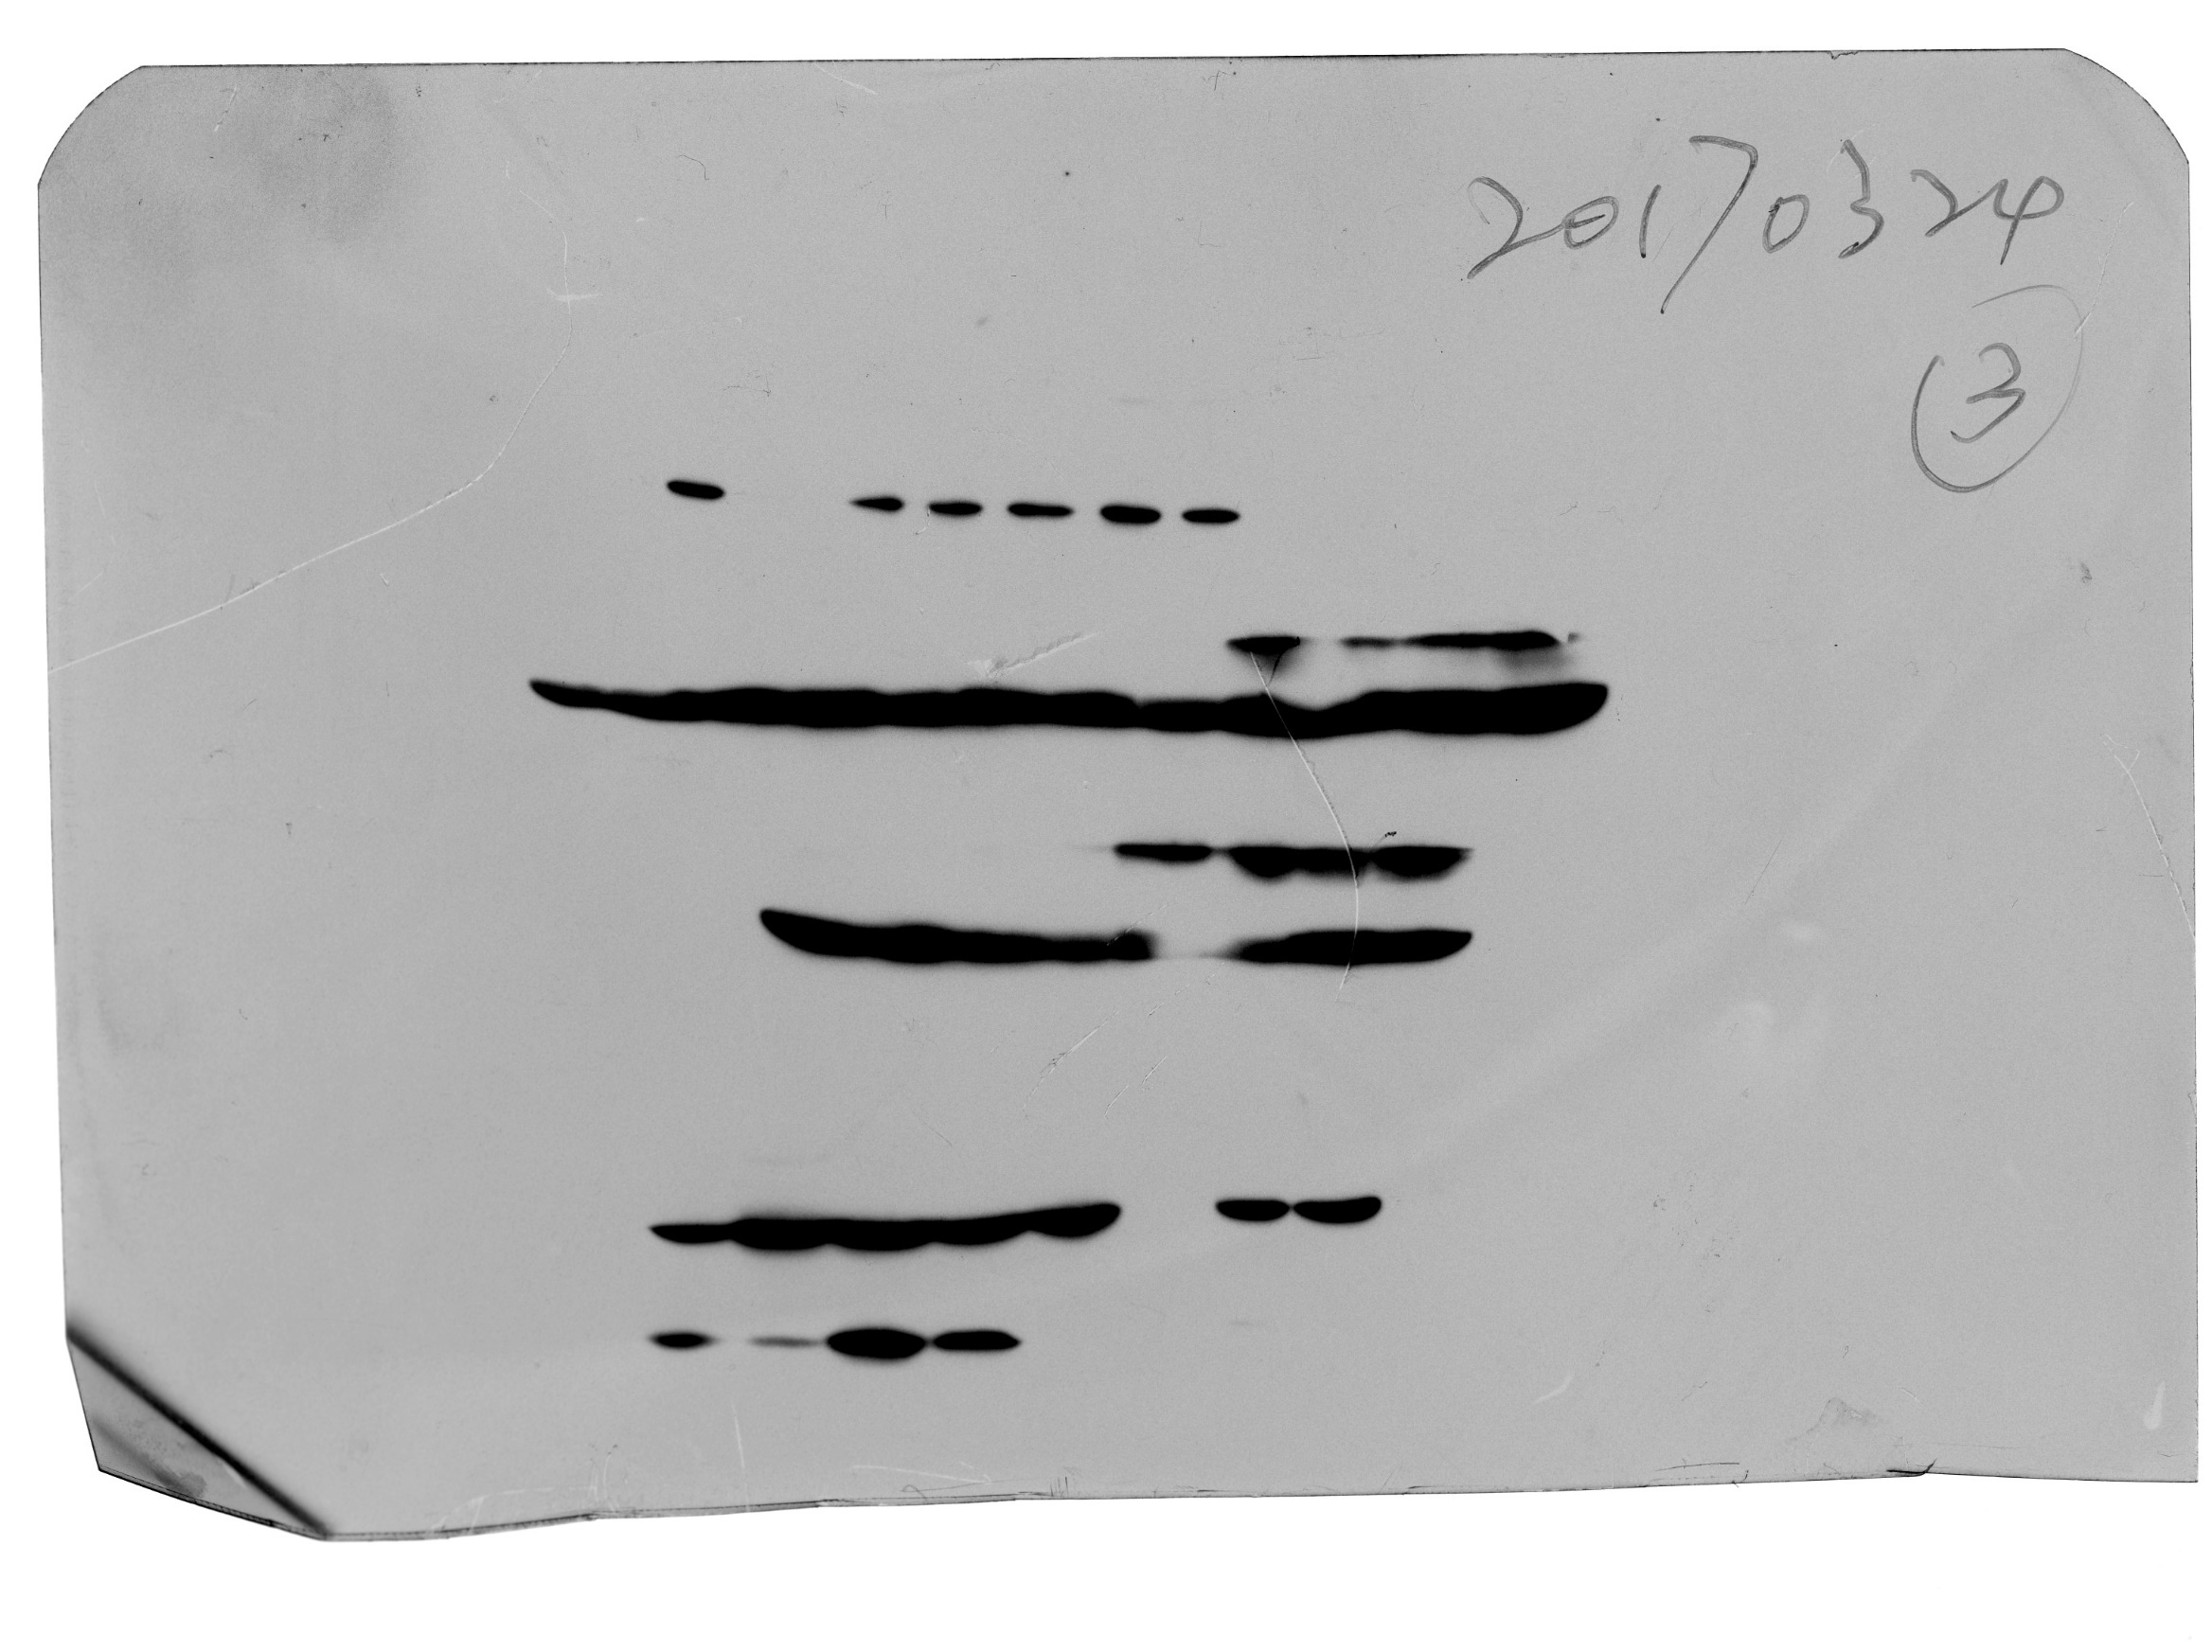 20170324
③